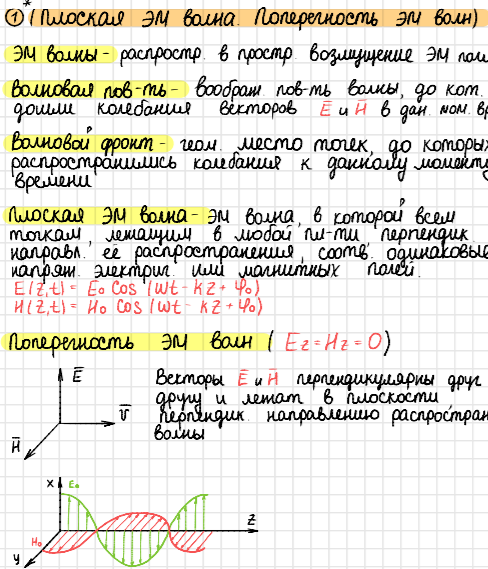 ① * (Плоская ЭМ волна. Поперечность ЭМ волн)
ЭМ волны - распростр. в простр. возмущение ЭМ пол
Волновая пов-ть - воображ пов-ть волны, до кот.
дошли колебания векторов E̅ и H̅ в дан. мом. вр
Волновой фронт - геом. место точек, до которых
распространились колебания к данному моменту
времени
Плоская ЭМ волна - ЭМ волна, в которой всем
точкам, лежащим в любой пл-ти перпендик
направл. её распространения, соотв. одинаковые
напряж. электрич. или магнитных полей.
E(z,t) = E₀ cos (ωt - kz + φ₀)
H(z,t) = H₀ cos (ωt - kz + φ₀)
Поперечность ЭМ волн (Ez = Hz = 0)
E̅
H̅
v̅
Векторы E̅ и H̅ перпендикулярны друг
другу и лежат в плоскости
перпендик. направлению распростран
волны
x
E₀
H₀
y
z